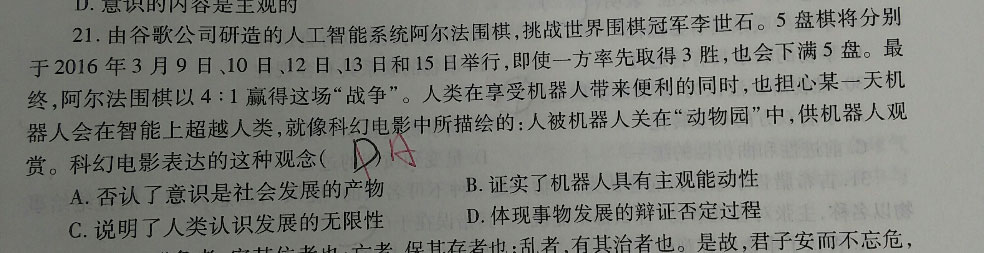 D. 意识的内容是主观的
21. 由谷歌公司研造的人工智能系统阿尔法围棋,挑战世界围棋冠军李世石。5 盘棋将分别
于 2016 年 3 月 9 日、10 日、12 日、13 日和 15 日举行,即使一方率先取得 3 胜,也会下满 5 盘。最
终,阿尔法围棋以 4∶1 赢得这场“战争”。人类在享受机器人带来便利的同时,也担心某一天机
器人会在智能上超越人类,就像科幻电影中所描绘的:人被机器人关在“动物园”中,供机器人观
赏。科幻电影表达的这种观念( D ) A
A. 否认了意识是社会发展的产物 B. 证实了机器人具有主观能动性
C. 说明了人类认识发展的无限性 D. 体现事物发展的辩证否定过程
者也;亡者,保其存者也;乱者,有其治者也。是故,君子安而不忘危,